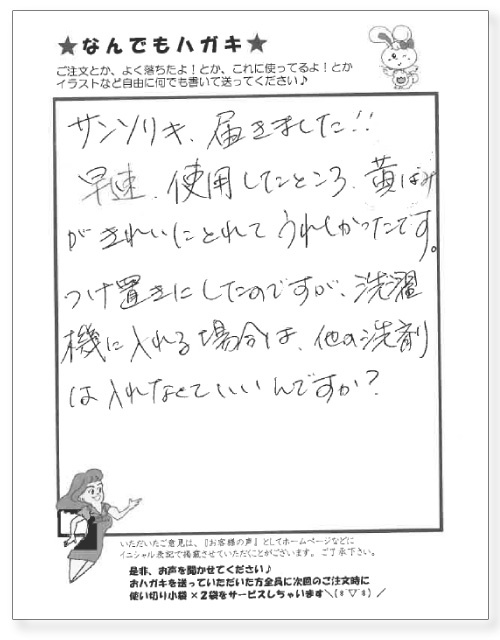 ★なんでもハガキ★
ご注文とか、よく落ちたよ！とか、これに使ってるよ！とか
イラストなど自由に何でも書いて送ってください♪
サンソリキ、届きました!!
早速、使用したところ、黄ばみ
がきれいにとれてうれしかったです。
つけ置きにしたのですが、洗濯
機に入れる場合は、他の洗剤
は入れなくていいんですか?
いただいたご意見は、『お客様の声』としてホームページなどに
イニシャル表記で掲載させていただくことがございます。ご了承下さい。
是非、お声を聞かせてください♪
おハガキを送っていただいた方全員に次回のご注文時に
使い切り小袋×2袋をサービスしちゃいます＼(*▽*)／